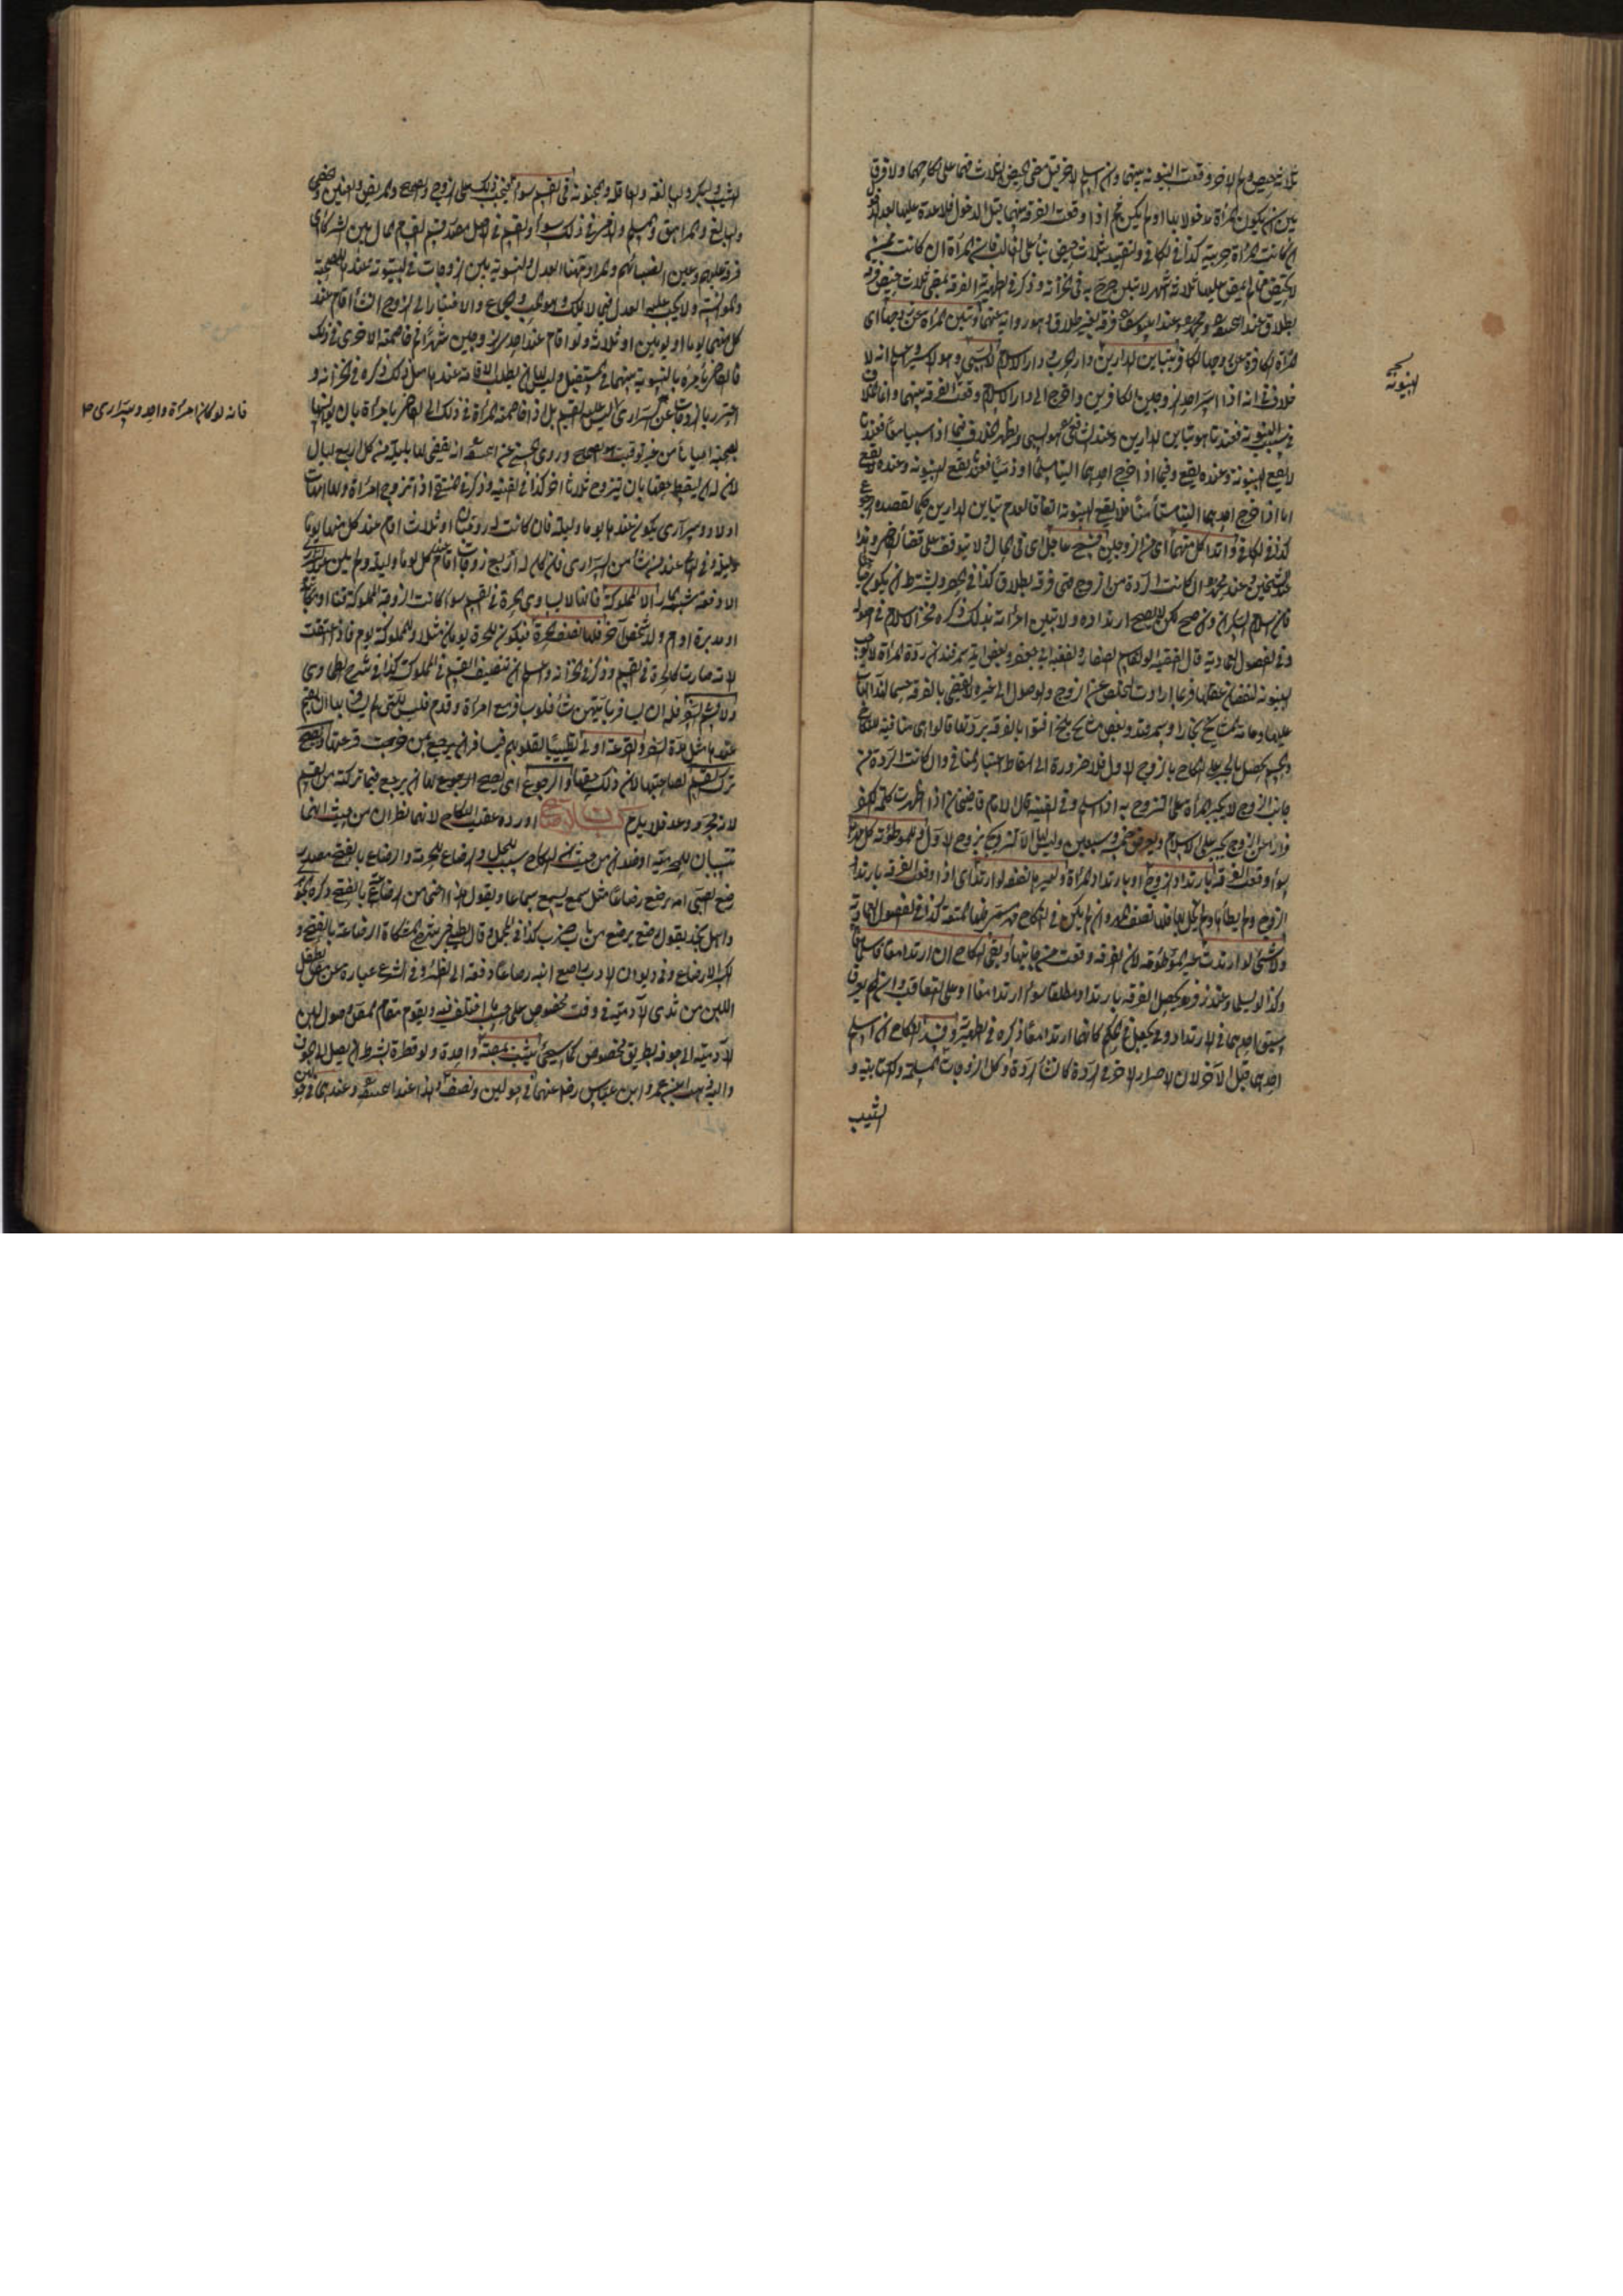 ثلاثة حيض ولم الاخر وقعت البينونة بينهما وان اسلم الاخر قبل مضى الحيض الثلاث فهما على نكاحهما ولا فرق
بين ان يكون المرأة مدخولا بها او لم يكن ثم اذا وقعت الفرقة بينهما قبل الدخول فلا عدة عليها بعد
ان كانت المرأة حربية كذا في الكافي والتقييد بثلاث حيض بناء على الغالب فان المرأة ان كانت ممن
لا تحيض فما لم يمض عليها ثلاثة اشهر لا تبين صرح به في الخزانة وذكر في الظهيرية الفرقة بمضي ثلاث حيض فرقة
بطلاق عند ومحمد وعند ابي يوسف فرقة بغير طلاق وهو رواية عنهما وتبين المرأة عن زوجها اى
المرأة الكافرة عن زوجها الكافر بتباين الدارين دار الحرب ودار الاسلام لا السبى وهو الاسر اعلم انه لا
خلاف في انه اذا اسر احد الزوجين الكافرين واخرج الى دار الاسلام وقعت الفرقة بينهما وانما الخلاف
في سبب البينونة فعندنا هو تباين الدارين وعند الشافعي هو السبى ويظهر الخلاف فيما اذا سبيا معا فعندنا
لا يقع البينونة وعنده يقع وفيما اذا خرج احدهما الينا مسلما او ذميا فعندنا يقع البينونة وعنده لا يقع
اما اذا خرج احدهما الينا مستأمنا فلا يقع البينونة اتفاقا لعدم تباين الدارين حكما لقصده الرجوع
كذا في الكافي وارتداد كل منهما اى من الزوجين فسخ عاجل اى في الحال ولا يتوقف على قضاء القاضي وهذا
عند الشيخين وعند محمد ان كانت الردة من الزوج فهى فرقة بطلاق كذا في ويشترط ان يكون
فان اسلام السكران وان صح لكن لا يصح ارتداده ولا تبين امرأته بذلك ذكره فخر الاسلام في اصوله
وفي الفصول العمادية قال الفقيه ابو القاسم الصفار والفقيه ابو جعفر وبعض ائمة سمرقند ان ردة المرأة لا توجب
البينونة لنقصان عقلها فربما ارادت التخلص عن الزوج والوصول الى غيره لا يقضى بالفرقة حسما لهذا الباب
عليها وعامة مشايخ بخارا وسمرقند وبعض مشايخ بلخ افتوا بالفرقة بردتها قالوا هى منافية للنكاح
والحسم يحصل بالجبر على النكاح بالزوج الاول فلا ضرورة الى اسقاط اعتبار المنافى وان كانت الردة من
جانب الزوج لا يجبر المرأة على التزوج به اذا اسلم وفي القنية قال الامام قاضيخان اذا اظهرت كلمة الكفر
فرارا من الزوج يجبر على الاسلام ويعزر خمسة وسبعين وليس لها الا التزوج بزوج الاول وللموطوءة كل المهر
سواء وقعت الفرقة بارتداد الزوج او بارتداد المرأة ولغيرها نصفه لو ارتد اى اذا وقعت الفرقة بارتداد
الزوج ولم يطأها ولم يخل بها فلها نصف المهر وان لم يكن في النكاح مهر مسمى فلها المتعة كذا في الفصول العمادية
ولا شئ لو ارتدت غير الموطوءة لان الفرقة وقعت من جانبها وبقى النكاح ان ارتدا معا فاسلما معا
وكذا لو اسلما وعند زفر يحصل الفرقة بارتداد مطلقا سواء ارتدا معا او على التعاقب وان لم يعرف
سبق احدهما في الارتداد يجعل في الحكم كانهما ارتدا معا ذكره في الظهيرية وفسد النكاح ان اسلم
احدهما قبل الآخر لان الاصرار الاخر في الردة كانشاء الردة وكل الزوجات المسلمة والكتابية و
الثيب
البينونة
الثيب والبكر والبالغة والعاقلة والمجنونة في القسم سواء فيجب ذلك على الزوج الصحيح والمريض والعنين والخصى
والبالغ والمراهق والمسلم والذمي في ذلك سواء والقسم في الاصل مصدر قسم القسام المال بين الشركاء اى
فرقه عليهم وعين انصباءهم والمراد ههنا العدل والتسوية بين الزوجات في البيتوتة عندها للصحبة
والموانسة ولا يجب عليه العدل فيما لا يملك وهو الحب والجماع والاختيار الى الزوج ان شاء اقام عند
كل منهما يوما او يومين او ثلاثة ولو اقام عند احدى الزوجين شهرا ثم خاصمته الاخرى في ذلك
فالقاضى يأمره بالتسوية بينهما في المستقبل وليس لها ان يطلب الاقامة عندها مثل ذلك ذكره في الخزانة و
احترز بالزوجات عن السرارى اذ ليس عليه القسم بل اذا خاصمته المرأة في ذلك الى القاضى يأمره بان يؤنسها
بصحبته احيانا من غير توقيت هو الصحيح وروى الحسن عن انه يقضى لها بليلة من كل اربع ليال
لان له ان يسقط حقها بان يتزوج ثلاثا اخر كذا في القنية وذكر في اذا تزوج امرأة ولها امهات
اولاد وسرارى يكون عندها يوما وليلة فان كانت له زوجتان او ثلاث اقام عند كل منها يوما
وليلة وفي عند من شاء من السرارى فان كان له اربع زوجات اقام عند كل يوما وليلة ولم يكن عند السرارى
الا وقفة شبه المار الا المملوكة فانها لا يساوى الحرة في القسم سواء كانت الزوجة المملوكة قنا او مكاتبة
او مدبرة او ام ولد لشخص آخر فلها نصف الحرة فيكون للحرة يومان مثلا وللمملوكة يوم فاذا اعتقت
لانه صارت كالحرة في القسم وذكر في الخزانة واعلم ان تنصيف القسم في المملوكة كذا في شرح الطحاوى
ولا قسم في السفر فله ان يسافر بايتهن شاء فلو سافر مع امرأة وقدم فليس للتى لم يسافر بها ان يقيم
عندها مثل مدة السفر والقرعة اولى تطييبا لقلوبهم فيسافر بمن خرجت قرعتها ويصح
ترك القسم لصاحبتها لان ذلك حقها والرجوع اى يصح الرجوع لها ان يرجع فيما تركته من القسم
لانه مجرد وعد فلا يلزم كتاب الرضاع اورده عقيب النكاح لانهما نظرا من حيث انهما
يثبتان للحرمية او ضدان من حيث ان النكاح سبب للحل والرضاع للحرمة والرضاع بالفتح مصدر
رضع الصبى امه يرضع رضاعا مثل سمع يسمع سماعا ويقول هذا اخى من الرضاعة بالفتح ذكره
واهل نجد يقول رضع يرضع من باب ضرب كذا في المجمل وقال الطيبى في شرح المشكاة الرضاعة بالفتح و
الكسر الارضاع وفي ديوان الادب ارضع ابنه رضاعا دفعه الى الظئر وفي الشرع عبارة عن مص الطفل
اللبن من ثدى الآدمية في وقت مخصوص على حسب ما اختلف فيه ويقوم مقام المص وصول لبن
الآدمية الى جوفه بطريق مخصوص كما سيجئ يثبت بمصة واحدة ولو قطرة بشرط ان يصل الى الجوف
واليه ذهب ابن عمر وابن عباس رضى عنهما في حولين ونصف وهذا عند وعندهما في حولين
فانه لو كان امرأة واحد وسرارى